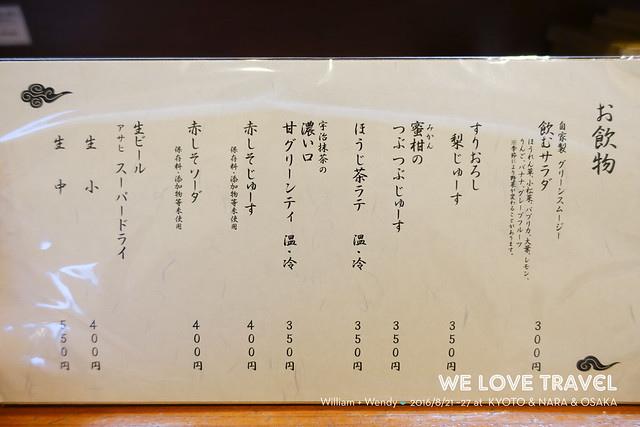 お飲物
自家製 グリーンスムージー
飲むサラダ
ほうれん草、小松菜、パプリカ、大葉、レモン、
りんご、バナナ、グレープフルーツ
※季節により野菜が変わることがあります。
300円
すりおろし
梨じゅーす
350円
みかん
蜜柑の
つぶつぶじゅーす
350円
ほうじ茶ラテ 温・冷
350円
宇治抹茶の
濃い口
甘グリーンティ 温・冷
350円
赤しそじゅーす
保存料・添加物等未使用
400円
赤しそソーダ
保存料・添加物等未使用
400円
生ビール
アサヒ スーパードライ
生 小
400円
生 中
550円
WE LOVE TRAVEL
William + Wendy 2016/8/21 -27 at KYOTO & NARA & OSAKA